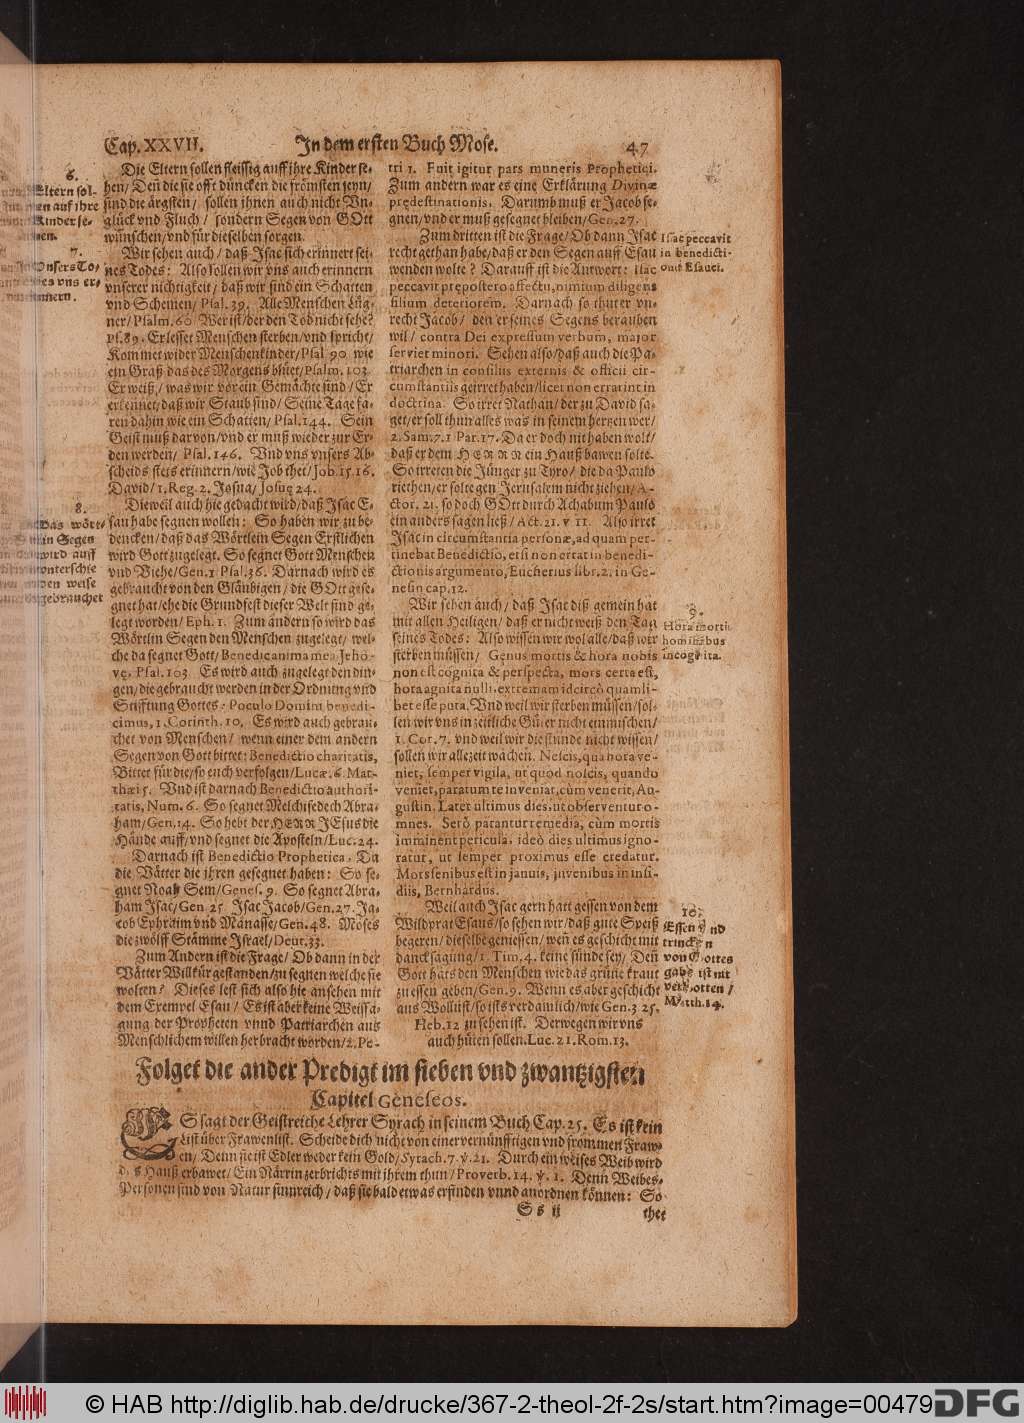 Cap. XXVII. In dem ersten Buch Mose. 47
6.
Eltern sol-
len auf ihre
Kinder se-
hen.
7.
Unsers To-
des uns er-
innern.
8.
Das wört-
lin Segen
wird auff
unterschie
weise
gebrauchet
Die Eltern sollen fleissig auff ihre Kinder se-
hen / Deñ die sie offt düncken die frömsten seyn /
sind die ärgsten / sollen ihnen auch nicht Vn-
glück vnd Fluch / sondern Segen von GOtt
wünschen / vnd für dieselben sorgen.
Wir sehen auch / daß Isac sich erinnert sei-
nes Todes: Also sollen wir vns auch erinnern
vnserer nichtigkeit / daß wir sind ein Schatten
vnd Schemen / Psal. 39. Alle Menschen Lüg-
ner / Psalm. 60 Wer ist / der den Tod nicht sehe?
Ps. 89. Er lesset Menschen sterben / vnd spricht /
Kommet wider Menschenkinder / Psal 90 wie
ein Graß das des Morgens blüet / Psalm. 103
Er weiß / was wir vor ein Gemächte sind / Er
erkennet / daß wir Staub sind / Seine Tage fa-
ren dahin wie ein Schatten / Psal. 144. Sein
Geist muß darvon / vnd er muß wieder zur Er-
den werden / Psal. 146. Vnd vns vnsers Ab-
scheids stets erinnern / wie Job thet / Job. 15. 16.
David / 1. Reg. 2. Josua / Josuę 24.
Dieweil auch hie gedacht wird / daß Isac E-
sau habe segnen wollen: So haben wir zu be-
dencken / daß das Wörtlein Segen Erstlichen
wird Gott zugelegt. So segnet Gott Menschen
vnd Viehe / Gen. 1 Psal. 36. Darnach wird es
gebraucht von den Gläubigen / die GOtt gese-
gnet hat / ehe die Grundfest dieser Welt sind ge-
legt worden / Eph. 1. Zum andern so wird das
Wörtlin Segen den Menschen zugelegt / wel-
che da segnet Gott / Benedic anima mea Jeho-
vę, Psal. 103 Es wird auch zugelegt den din-
gen / die gebraucht werden in der Ordnung vnd
Stifftung Gottes: Poculo Domini benedi-
cimus, 1. Corinth. 10. Es wird auch gebrau-
chet von Menschen / wenn einer dem andern
Segen von Gott bittet: Benedictio charitatis,
Bittet für die / so euch verfolgen / Lucæ. 6 Mat-
thæi 5. Vnd ist darnach Benedictio authori-
tatis, Num. 6. So segnet Melchisedech Abra-
ham / Gen. 14. So hebt der HERR JEsus die
Hände auff / vnd segnet die Aposteln / Luc. 24.
Darnach ist Benedictio Prophetica. Da
die Vätter die ihren gesegnet haben: So se-
gnet Noah Sem / Genes. 9. So segnet Abra-
ham Isac / Gen 25 Isac Jacob / Gen. 27. Ja-
cob Ephraim vnd Manasse / Gen. 48. Moses
die zwölff Stämme Israel / Deut. 33.
Zum Andern ist die Frage / Ob dann in der
Vätter Willkür gestanden / zu segnen welche sie
wolten? Dieses lest sich also hie ansehen mit
dem Exempel Esau / Es ist aber keine Weissa-
gung der Propheten vnnd Patriarchen aus
Menschlichem willen herbracht worden / 2. Pe-
tri 1. Fuit igitur pars muneris Prophetici.
Zum andern war es eine Erklärung Divinæ
prędestinationis. Darumb muß er Jacob se-
gnen / vnd er muß gesegnet bleiben / Gen. 27.
Zum dritten ist die Frage / Ob dann Isac
recht gethan habe / daß er den Segen auff Esau
wenden wolte? Darauff ist die Antwort: Isac
peccavit prępostero affectu, nimium diligens
filium deteriorem. Darnach so thut er vn-
recht Jacob / den er seines Segens berauben
wil / contra Dei expressum verbum, major
serviet minori. Sehen also / daß auch die Pa-
triarchen in consiliis externis & officii cir-
cumstantiis geirret haben / licet non errarint in
doctrina. So irret Nathan / der zu David sa-
get / er soll thun alles was in seinem hertzen wer /
2. Sam. 7. 1 Par. 17. Da er doch nit haben wolt /
daß er dem HERRN ein Hauß bawen solte.
So irreten die Jünger zu Tyro / die da Paulo
riethen / er solte gen Jerusalem nicht ziehen / A-
ctor. 21. so doch GOtt durch Achabum Paulo
ein anders sagen ließ / Act. 21. v 11. Also irret
Isac in circumstantia personæ, ad quam per-
tinebat Benedictio, etsi non errat in benedi-
ctionis argumento, Eucherius libr. 2. in Ge-
nesin cap. 12.
Wir sehen auch / daß Isac diß gemein hat
mit allen Heiligen / daß er nicht weiß den Tag
seines Todes: Also wissen wir wol alle / daß wir
sterben müssen / Genus mortis & hora nobis
non est cognita & perspecta, mors certa est,
hora agnita nulli, extremam idcircò quamli-
bet esse puta. Vnd weil wir sterben müssen / sol-
len wir vns in zeitliche Güter nicht einmischen /
1. Cor. 7. vnd weil wir die stunde nicht wissen /
sollen wir allezeit wachen. Nescis, qua hora ve-
niet, semper vigila, ut quod nescis, quando
veniet, paratum te inveniat, cùm venerit, Au-
gustin. Latet ultimus dies, ut observentur o-
mnes. Serò parantur remedia, cùm mortis
imminent pericula, ideò dies ultimus igno-
ratur, ut semper proximus esse credatur.
Mors senibus est in januis, juvenibus in insi-
diis, Bernhardus.
Weil auch Isac gern hatt gessen von dem
Wildprat Esaus / so sehen wir / daß gute Speiß
begeren / dieselbe geniessen / weñ es geschicht mit
dancksagung / 1. Tim. 4. keine sünde sey / Deñ
Gott hats den Menschen wie das grüne kraut
zu essen geben / Gen. 9. Wenn es aber geschicht
aus Wollust / so ists verdamlich / wie Gen. 3 25.
Heb. 12 zu sehen ist. Derwegen wir vns
auch hüten sollen. Luc. 21. Rom. 13.
Isac peccavit
in benedicti-
one Esavei.
9.
Hora mortis
hominibus
incognita.
10.
Essen vnd
trincken
von Gottes
gabe ist nit
verbotten /
Matth. 14.
Folget die ander Predigt im sieben vnd zwantzigsten
Capitel Geneseos.
ES sagt der Geistreiche Lehrer Syrach in seinem Buch Cap. 25. Es ist kein
List über Frawenlist. Scheide dich nicht von einer vernünfftigen vnd frommen Fraw-
en / Denn sie ist Edler weder kein Gold / Syrach. 7. v. 21. Durch ein weises Weib wird
das Hauß erbawet / Ein Närrin zerbrichts mit ihrem thun / Proverb. 14. v. 1. Denn Weibes-
Personen sind von Natur sinnreich / daß sie bald etwas erfinden vnnd anordnen können: So
Ss ij thet
© HAB http://diglib.hab.de/drucke/367-2-theol-2f-2s/start.htm?image=00479
DFG